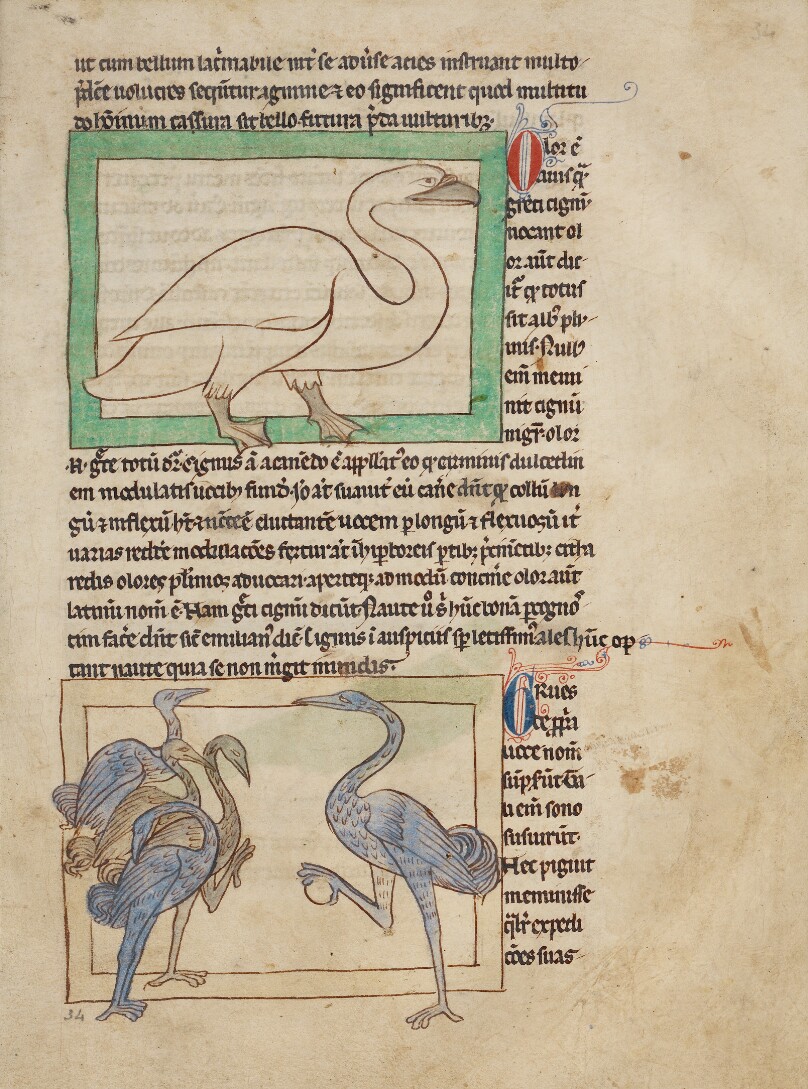 ut cum bellum lac̄mabile int̄ se adūse acies instruant multo
p̄dc̄e uolucres secūntur agmine ⁊ eo significent quod multitu
do hōīnum cassura sit bello futura p̄da uulturibꝫ.
Olor ē
auis q̄
greci cigni
uocant ol
or aūt dic
it̄ qͥ totus
sit alb̾ plu
mis. Null̾
em̄ memi
nit cignū
nigr̄. olor
gr̄e totū dr̄. Cignus ā a canēdo ē app̄llat̾ eo qͥ carminis dulcedin
em modulatis uocib̾ fund̾. Jō at̄ suauit̾ eū cañe dūt qͥ collū lon
gū ⁊ inflexū ħt ⁊ necc̄e ē eluctantē uocem p longū ⁊ flexuosū it̾
uarias redd̾e modulacōes fertur at̄ ī yperboreis ptib̾ p̄cinētibꝫ citha
redis olores pl̾imos aduolari aperteqꝫ ad modū concin̾e olor aūt
latinū nom̄ ē. Nam gr̄ci cigni dicūt. Naute ū̾ s̾ hūc bonā pregno᷒
tim fac̾e dn̄t sic̄ emilian̾ dic̄ Cignus ī auspiciis sp̄ letissim̾ ales hūc op
tant naute quia se non m̾git in undis.
Grues
uoce nom̄
sūp̄sert̄ Ta
li em̄ sono
susurr̄ūt
Hec pigiut
meminisse
q̄lr̄ expedi
cōes suas
34
34